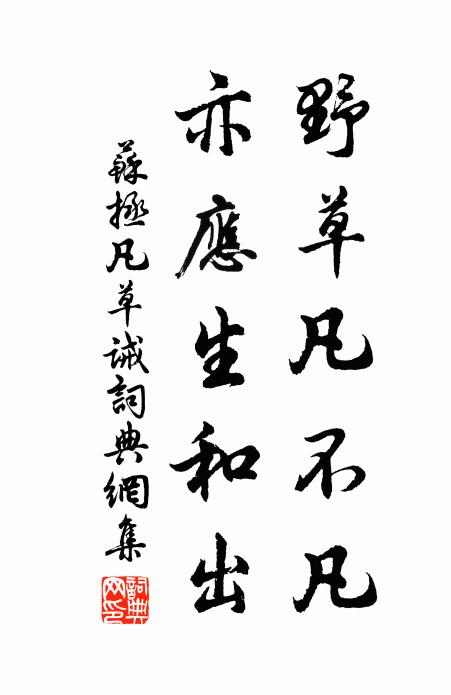 野草凡不凡
亦應生和出
蘇拯凡草誡詞典網集
詞典網印